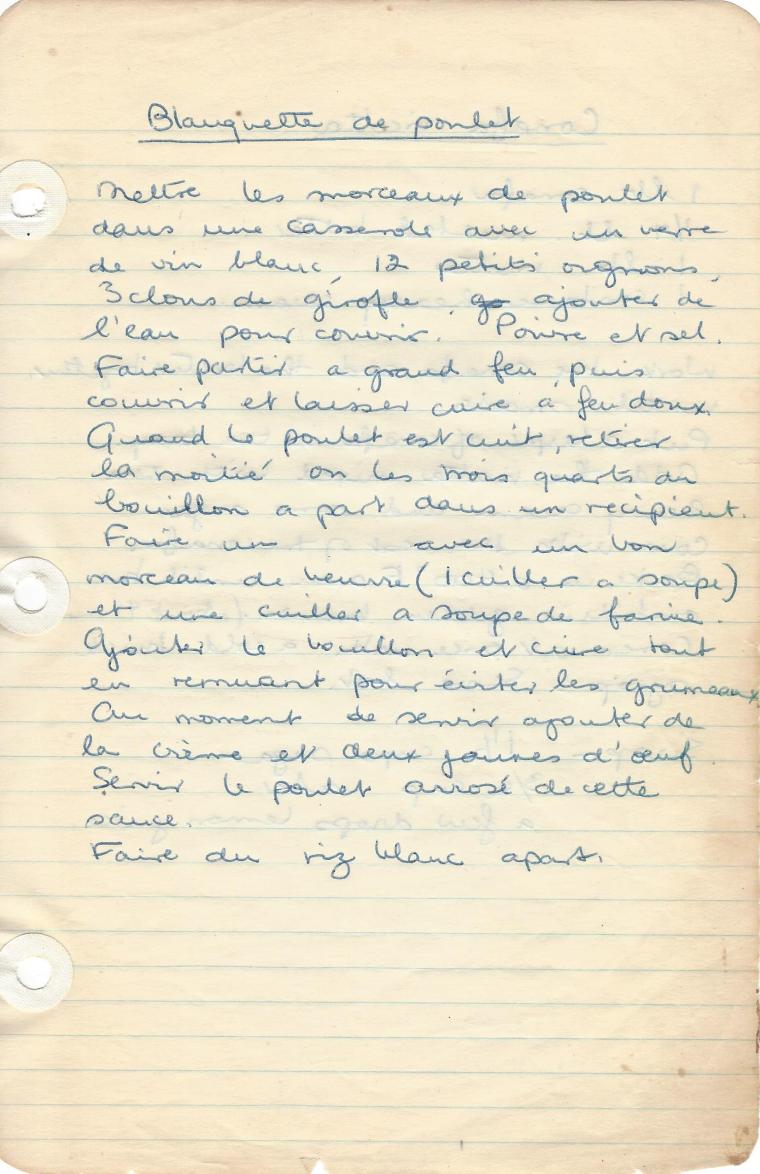 Blanquette de poulet
Mettre les morceaux de poulet
dans une casserole avec un verre
de vin blanc, 12 petits oignons,
3 clous de girofle, ajouter de
l'eau pour couvrir. Poivre et sel.
Faire partir a grand feu, puis
couvrir et laisser cuire à feu doux.
Quand le poulet est cuit, retirer
la moitié ou les trois quarts du
bouillon a part dans un recipient.
Faire un avec un bon
morceau de beurre (1 cuiller a soupe)
et une cuiller a soupe de farine.
Ajouter le bouillon et cuire tout
en remuant pour éviter les grumeaux
Au moment de servir ajouter de
la crème et deux jaunes d'œuf
Servir le poulet arrosé de cette
sauce.
Faire du riz blanc apart.